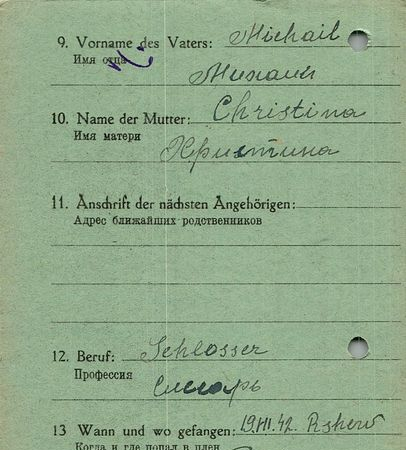 9. Vorname des Vaters: Michail
Имя отца
Михаил
10. Name der Mutter: Christina
Имя матери
Христина
11. Anschrift der nächsten Angehörigen:
Адрес ближайших родственников
12. Beruf: Schlosser
Профессия
Слесарь
13 Wann und wo gefangen: 42. Rshew
Когда и где попал в плен